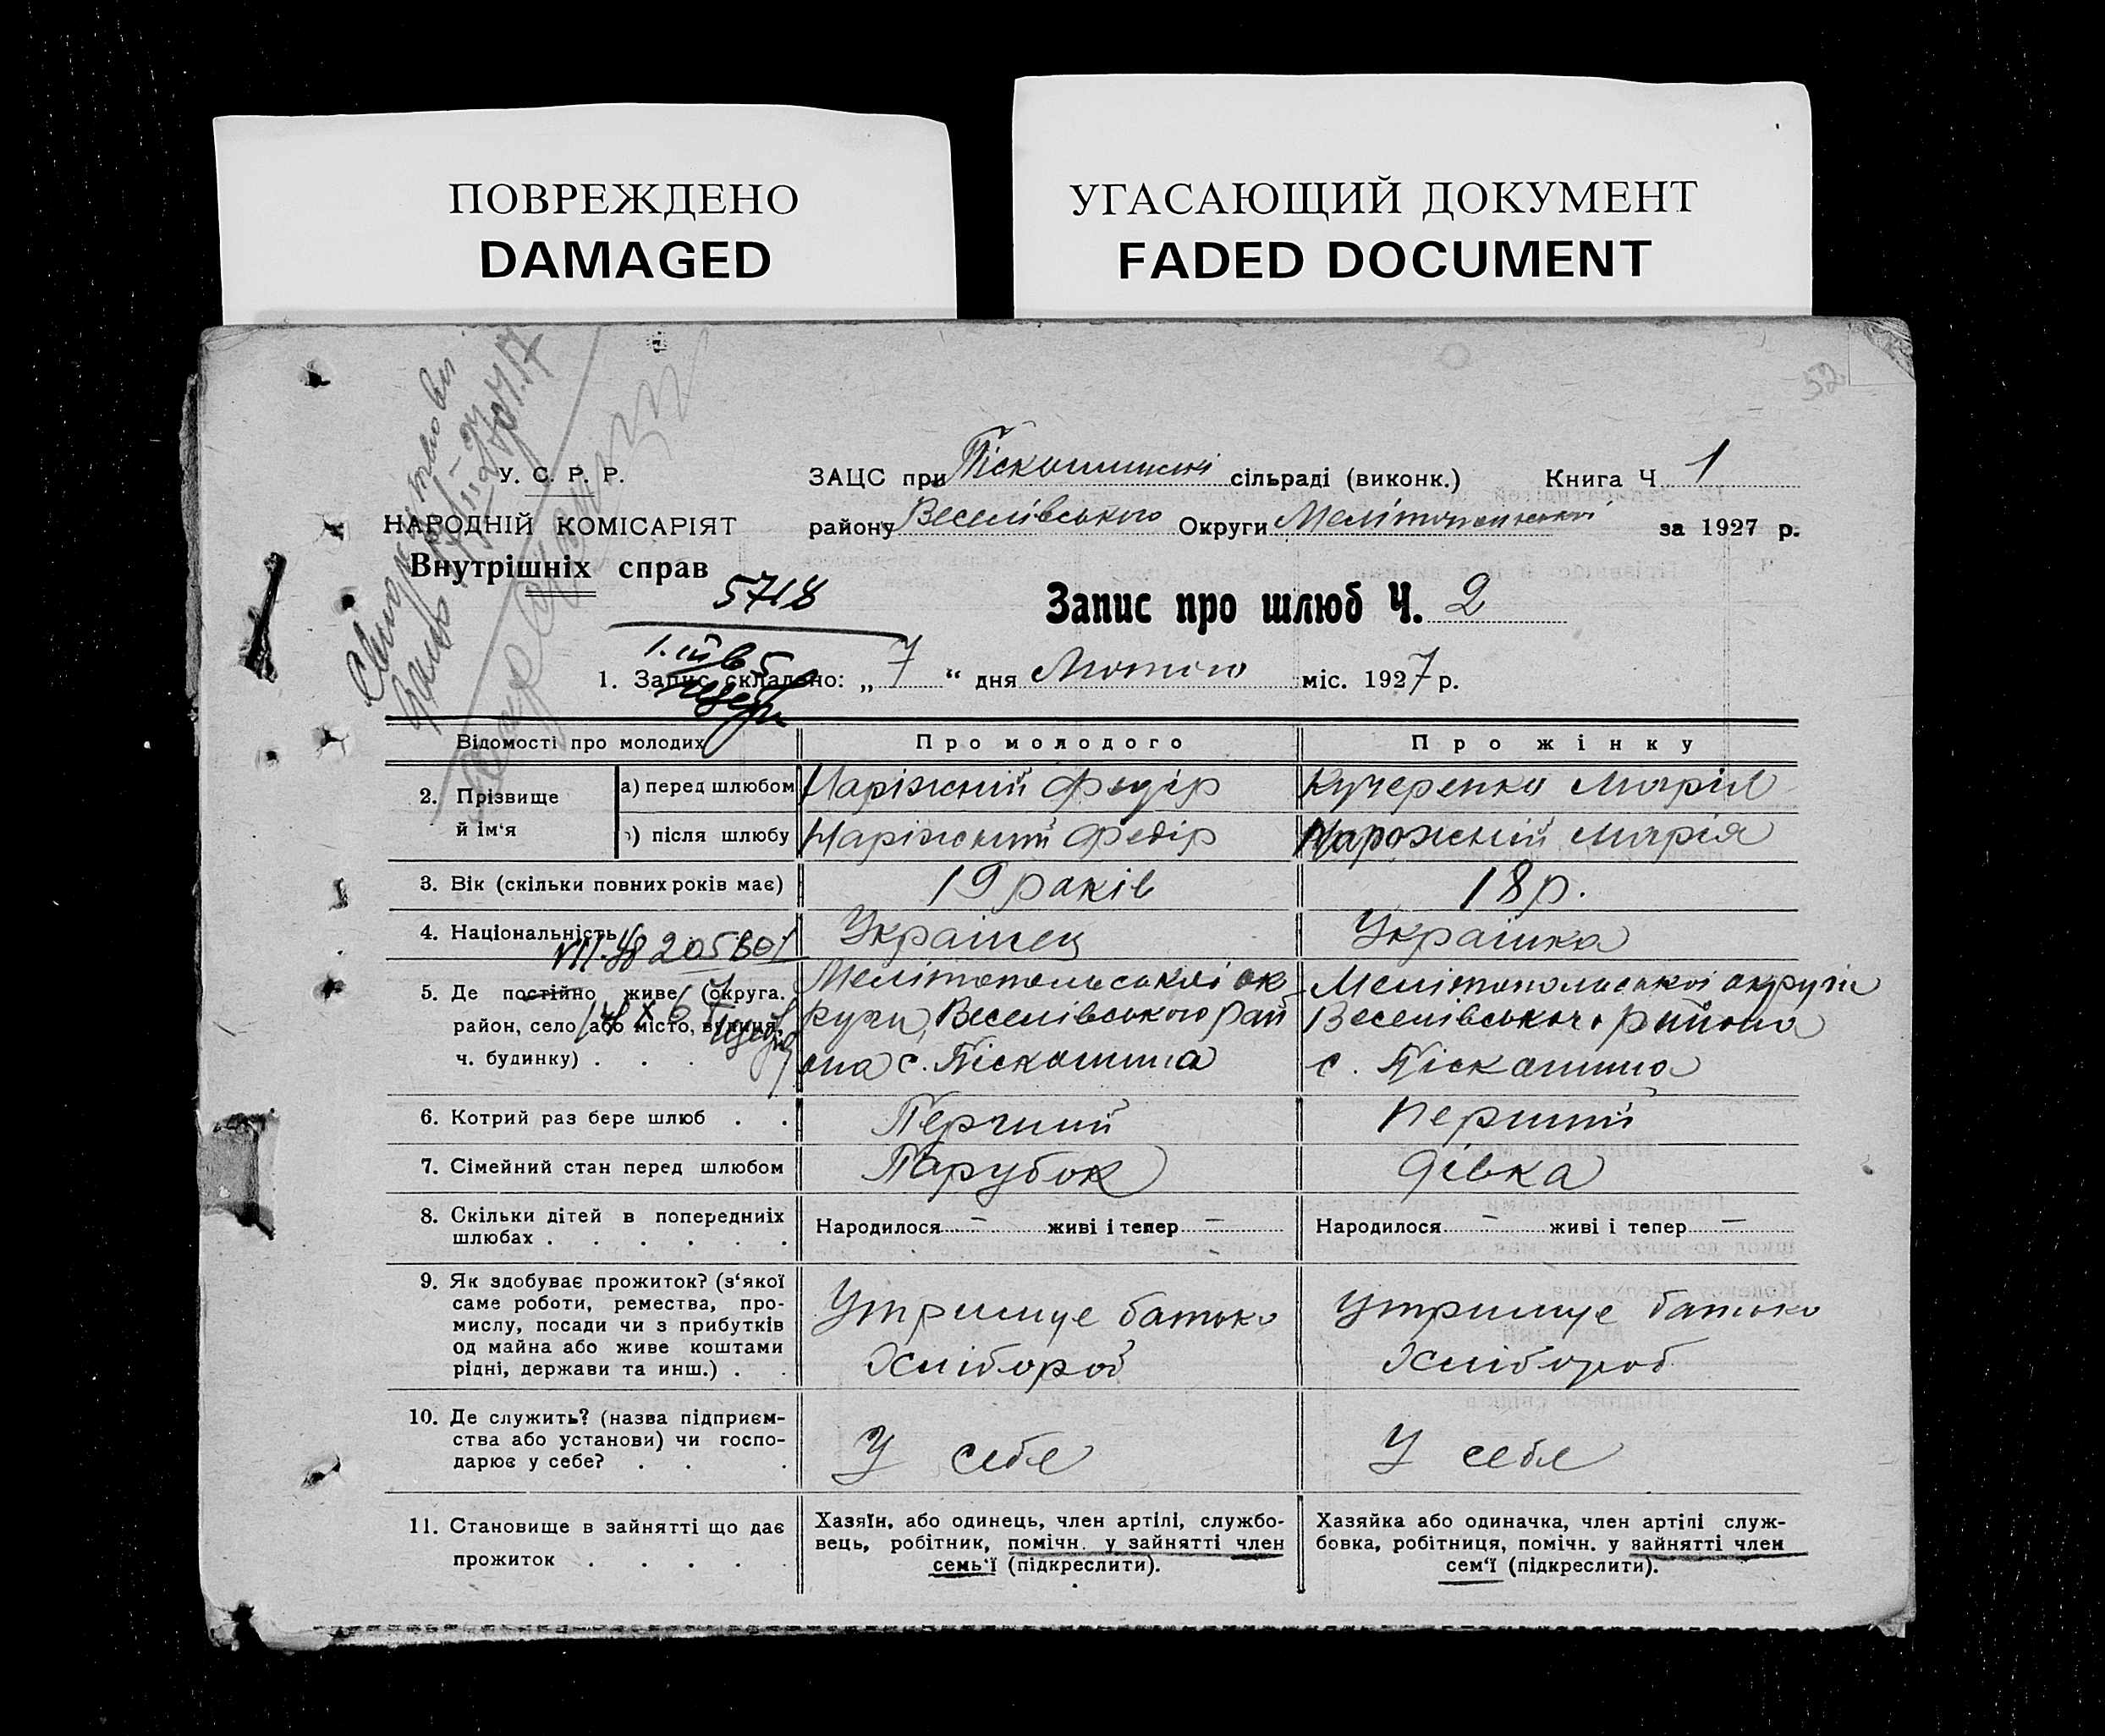 ПОВРЕЖДЕНО
DAMAGED
УГАСАЮЩИЙ ДОКУМЕНТ
FADED DOCUMENT
52
У. С. Р. Р.
НАРОДНІЙ КОМІСАРІЯТ
Внутрішніх справ
ЗАЦС при Піскошинскі сільраді (виконк.) Книга Ч 1
району Веселівського Округи Мелітопольської за 1927 р.
5718
Запис про шлюб Ч. 2
1. Запис складено: „ 7 “ дня Лютого міс. 1927 р.
Відомості про молодих
Про молодого
Про жінку
2. Прізвище й ім‘я
а) перед шлюбом
Наріжний Федір
Кучеренко Марія
) після шлюбу
Наріжний Федір
Нарожній Марія
3. Вік (скільки повних років має)
19 раків
18 р.
4. Національність
Українец
Українка
VII. 205801
5. Де постійно живе (округа.
район, село або місто, вулиця,
ч. будинку) . . .
Мелітопольської ок
руги, Веселівського рай
она с. Піскошина
Мелітопольської округи
Веселівського района
с. Піскошина
6. Котрий раз бере шлюб . .
Перчий
Перший
7. Сімейний стан перед шлюбом
Парубок
дівка
8. Скільки дітей в попередниіх
шлюбах . . . . . .
Народилося – живі і тепер –
Народилося – живі і тепер –
9. Як здобуває прожиток? (з‘якої
саме роботи, ремества, про-
мислу, посади чи з прибутків
од майна або живе коштами
рідні, держави та инш.) . .
Утримує батько
Хлібороб
Утримує батько
Хлібороб
10. Де служить? (назва підприєм-
ства або установи) чи госпо-
дарює у себе? . . .
У себе
У себе
11. Становище в зайнятті що дає
прожиток . . . . .
Хазяїн, або одинець, член артілі, службо-
вець, робітник, помічн. у зайнятті член
семь‘ї (підкреслити).
Хазяйка або одиначка, член артілі служ-
бовка, робітниця, помічн. у зайнятті член
сем‘ї (підкреслити).